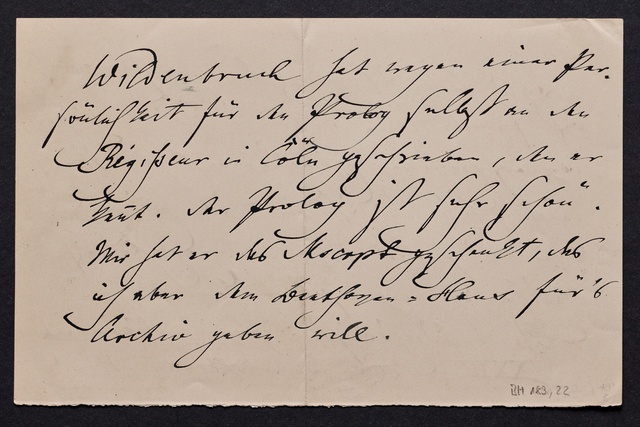 Wildenbruch hat wegen einer Per-
sönlichkeit für den Prolog selbst an den
Régisseur in Cöln geschrieben, den er
kennt. Der Prolog ist sehr schön.
Mir hat er das Mscopt geschenkt, das
ich aber dem Beethoven=Haus für's
Archiv geben will.
BH 183, 22